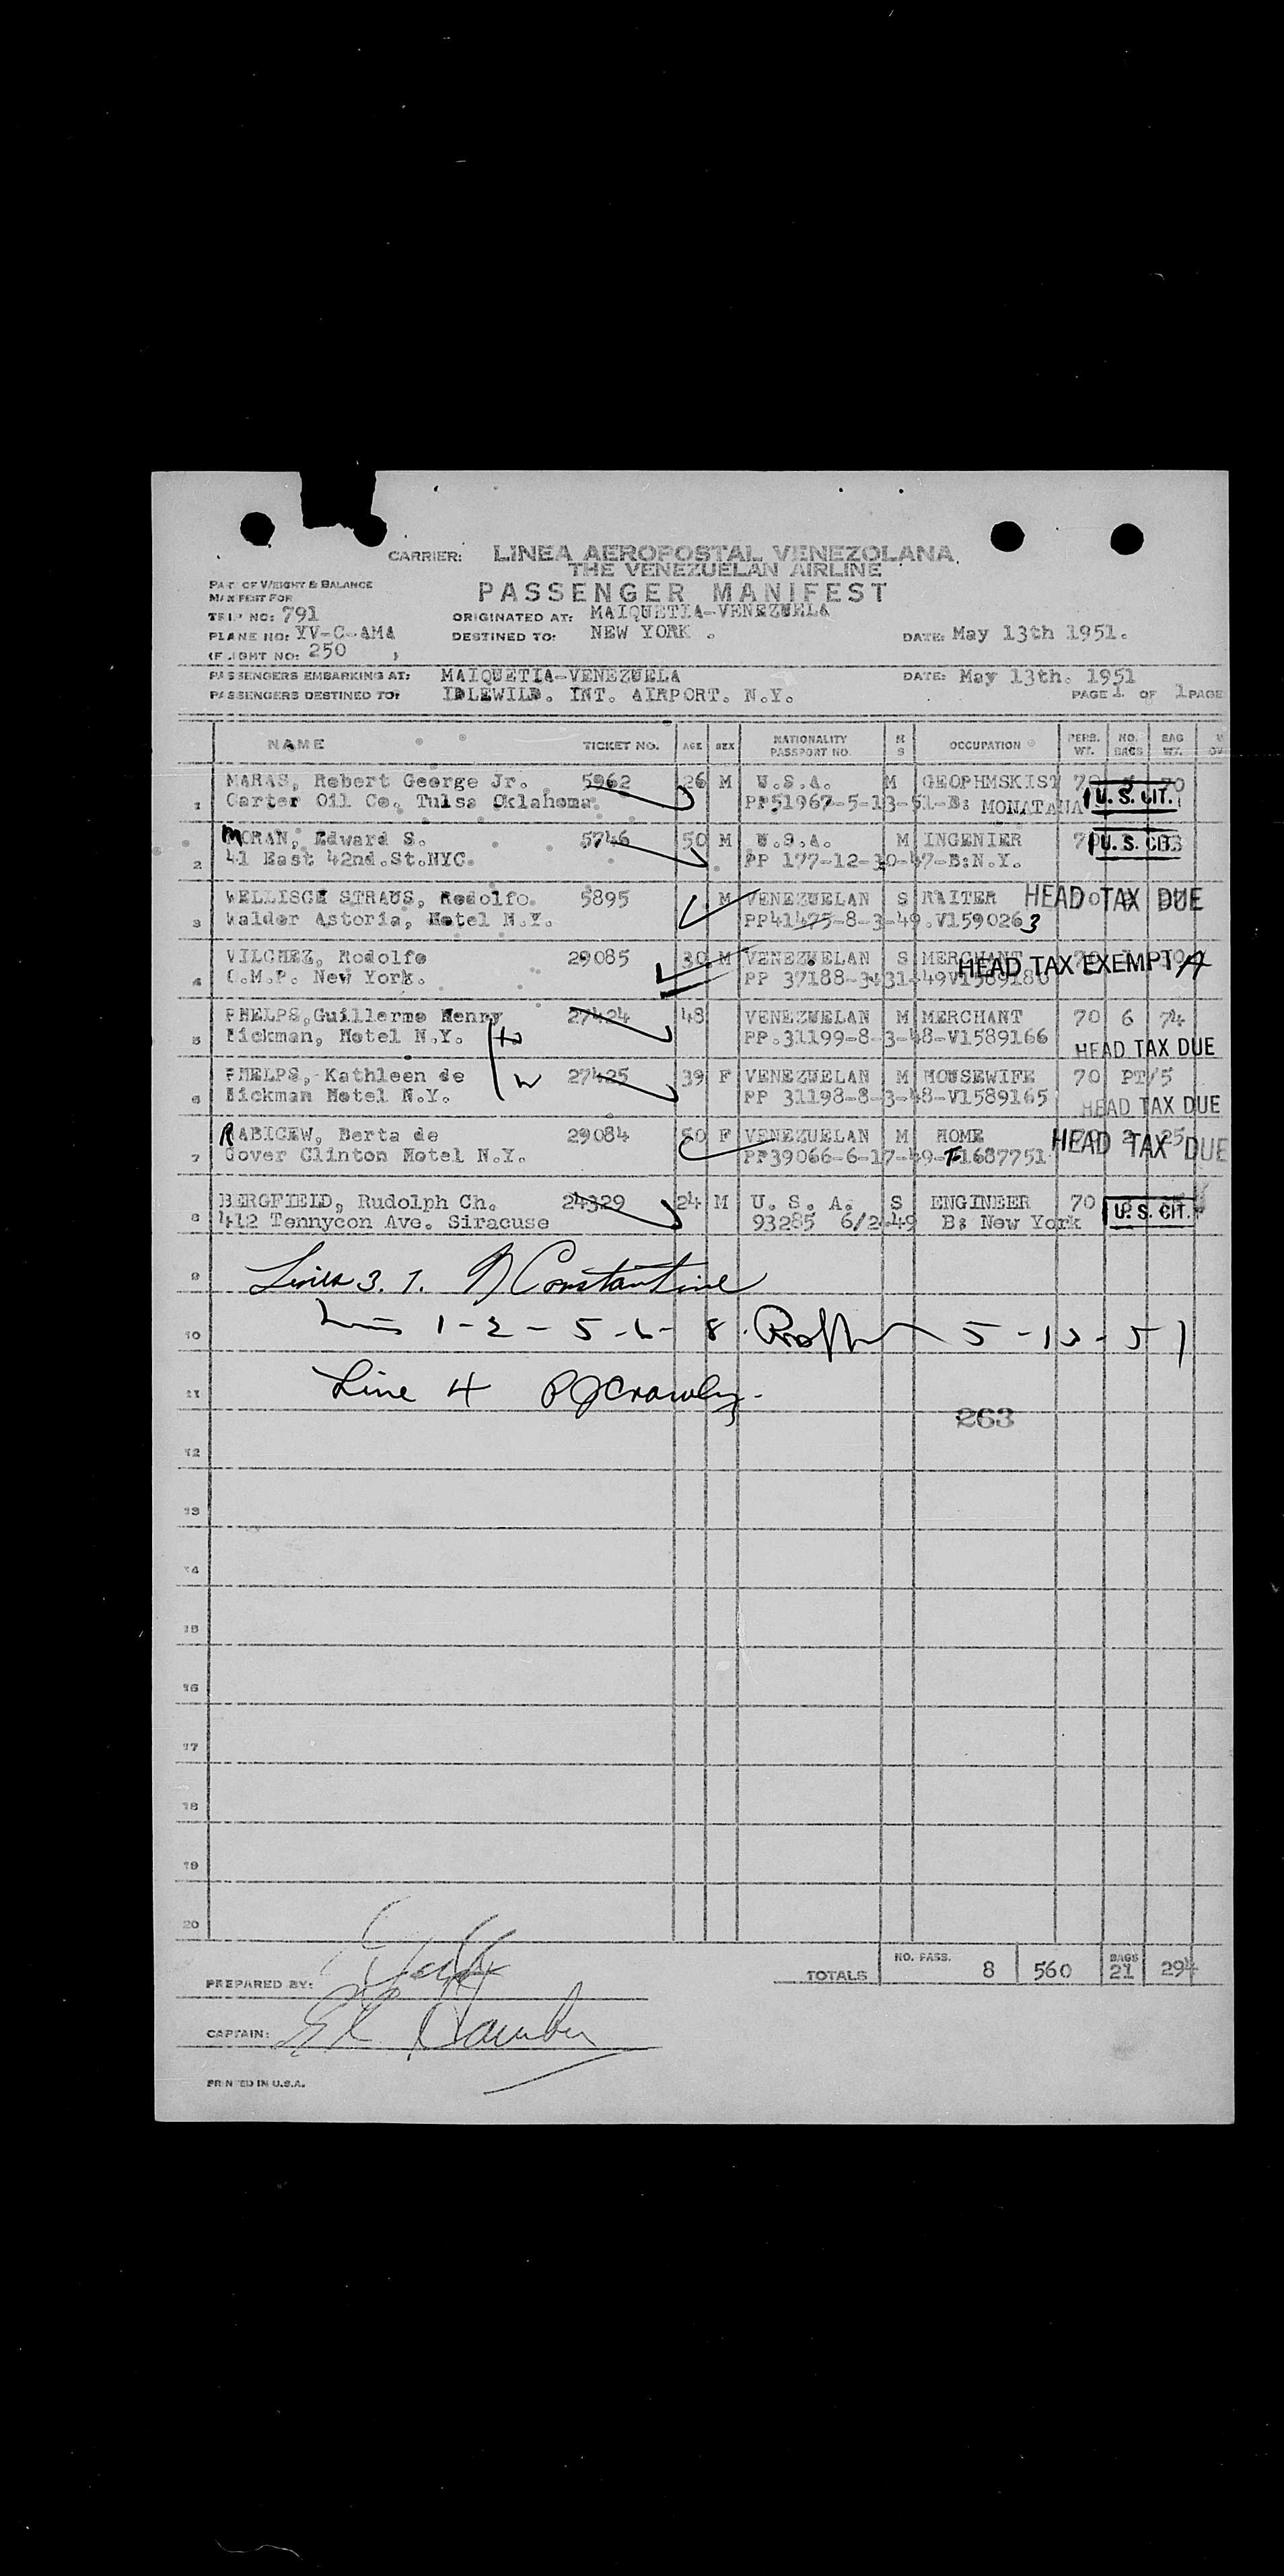 CARRIER: LINEA AEROPOSTAL VENEZOLANA
THE VENEZUELAN AIRLINE
PART OF WEIGHT & BALANCE
MANIFEST FOR
PASSENGER MANIFEST
TRIP NO: 791 ORIGINATED AT: MAIQUETIA-VENEZUELA
PLANE NO: YV-C-AMA DESTINED TO: NEW YORK . DATE: May 13th 1951.
(FLIGHT NO: 250 )
PASSENGERS EMBARKING AT: MAIQUETIA-VENEZUELA DATE: May 13th. 1951
PASSENGERS DESTINED TO: IDLEWILD. INT. AIRPORT. N.Y. PAGE 1 OF 1 PAGE
NAME TICKET NO. AGE SEX NATIONALITY PASSPORT NO. M S OCCUPATION PERS. WT. NO. BAGS BAG WT.
MARAS, Robert George Jr. 5962 26 M U.S.A. M GEOPHMSKIST 70
1 Carter Oil Co. Tulsa Oklahoma. PP51967-5-13-51-B: MONATANA U. S. CIT.
MORAN, Edward S. 5746 50 M U.S.A. M INGENIER 70 U. S. CIT.
2 41 East 42nd.St.NYC. PP 177-12-30-47-B:N.Y.
WELLISCH STRAUS, Rodolfo. 5895 M VENEZUELAN S RAITER HEAD TAX DUE
3 Walder Astoria, Hotel N.Y. PP41475-8-3-49.V1590263
VILCHEZ, Rodolfo 29085 30 M VENEZUELAN S MERCHANT HEAD TAX EXEMPT A
4 C.M.P. New York. PP 37188-3-31-49V1589180
PHELPS,Guillermo Henry 27424 48 VENEZUELAN M MERCHANT 70 6 74
5 Bickman, Hotel N.Y. H PP.31199-8-3-48-V1589166 HEAD TAX DUE
PHELPS, Kathleen de W 27425 39 F VENEZUELAN M HOUSEWIFE 70 PT/5
6 Bickman Hotel N.Y. PP 31198-8-3-48-V1589165 HEAD TAX DUE
RABICEW, Berta de 29084 50 F VENEZUELAN M HOME 2 25 HEAD TAX DUE
7 Gover Clinton Hotel N.Y. PP39066-6-17-49-T1687751
BERGFIELD, Rudolph Ch. 24329 24 M U. S. A. S ENGINEER 70 U. S. CIT.
8 412 Tennycon Ave. Siracuse 93285 6/2-49 B: New York
9 Lines 3. 7. Constantine
10 Lines 1-2-5-6-8. 5-13-51
11 Line 4 PJCrawley.
263
12
13
14
15
16
17
18
19
20
TOTALS NO. PASS. 8 560 BAGS 21 294
PREPARED BY:
CAPTAIN:
PRINTED IN U.S.A.